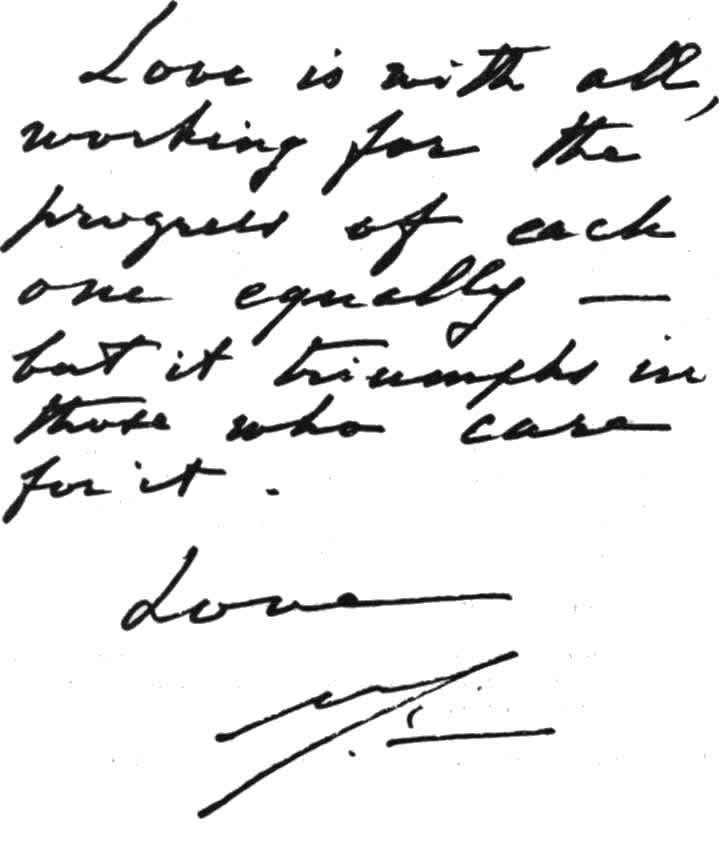 Love is with all,
working for the
progress of each
one equally —
but it triumphs in
those who care
for it.
Love